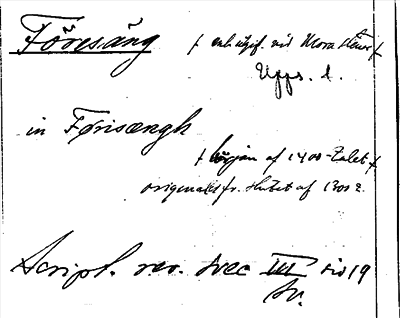 Föresäng / enl. uppg. vid Mora stenar /
Upps. l.
in Førisængh
/ början af 1400-talet /
originalet fr. slutet af 1300 t.
Script. rer. svec III sid 19
sv.